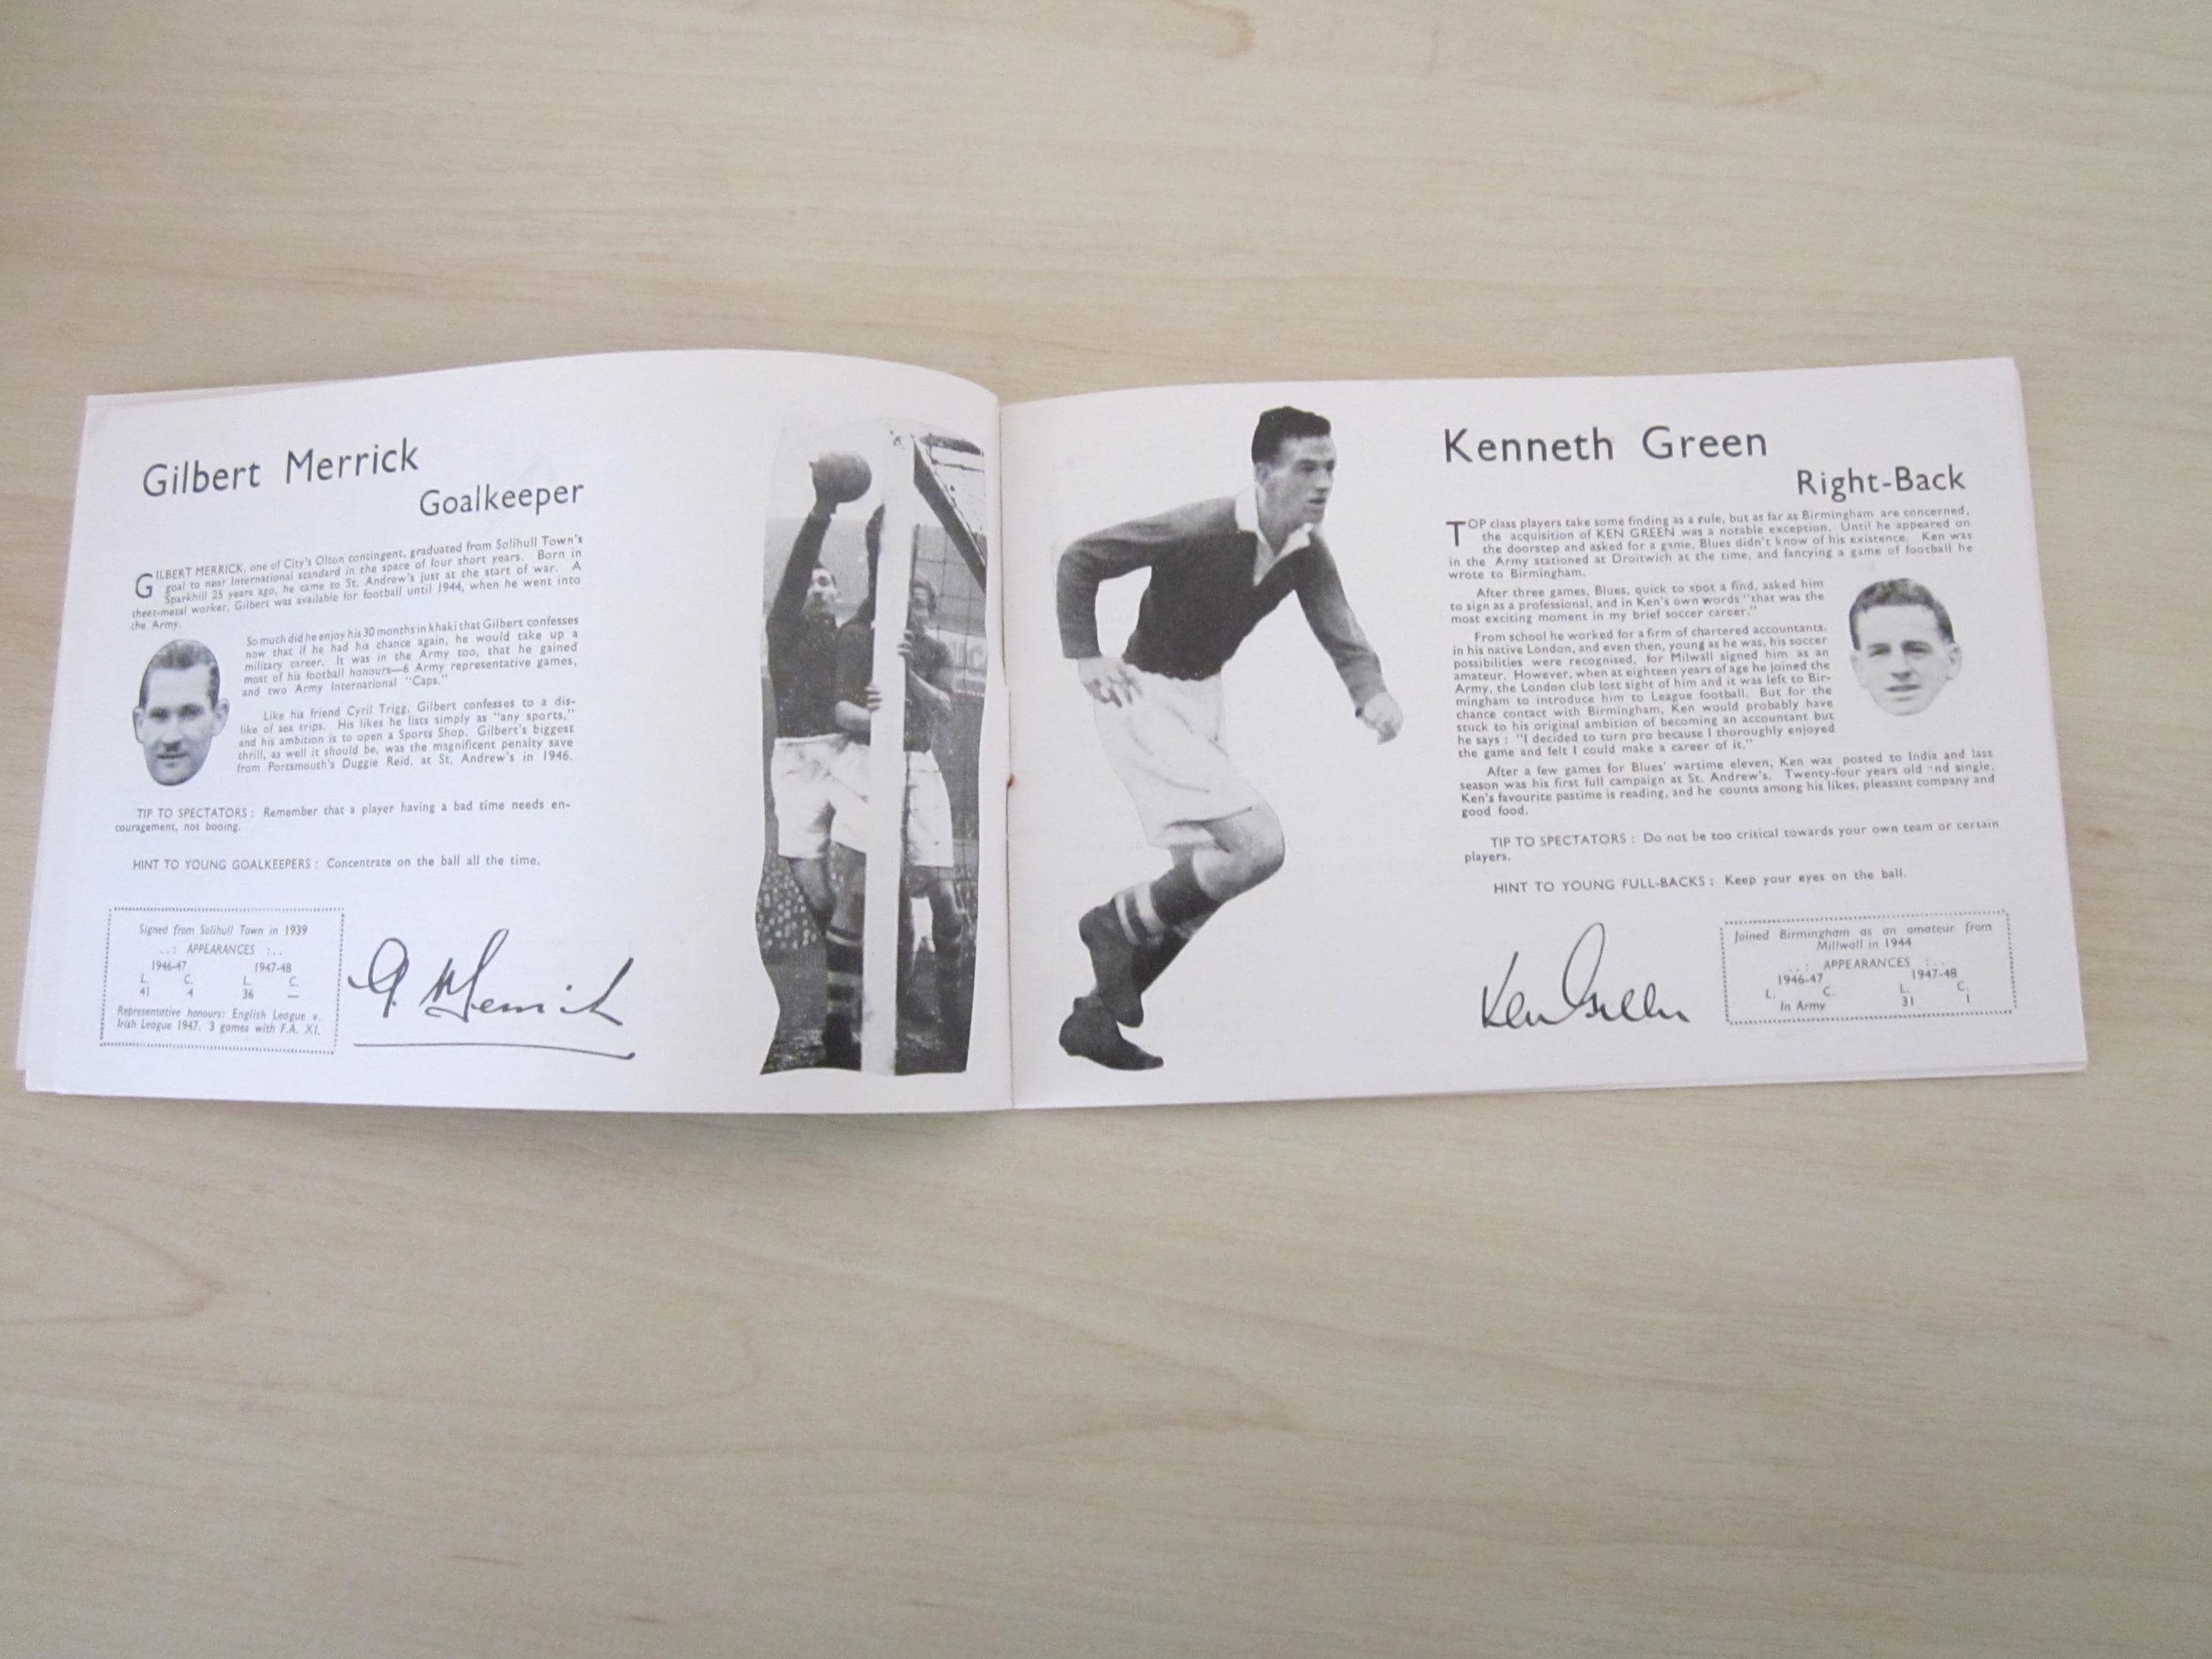 Gilbert Merrick
Goalkeeper
GILBERT MERRICK, one of City's Olton contingent, graduated from Solihull Town's
goal to near International standard in the space of four short years. Born in
Sparkhill 25 years ago, he came to St. Andrew's just at the start of war. A
sheet-metal worker, Gilbert was available for football until 1944, when he went into
the Army.
So much did he enjoy his 30 months in khaki that Gilbert confesses
now that if he had his chance again, he would take up a
military career. It was in the Army too, that he gained
most of his football honours—6 Army representative games,
and two Army International "Caps."
Like his friend Cyril Trigg, Gilbert confesses to a dis-
like of sea trips. His likes he lists simply as "any sports,"
and his ambition is to open a Sports Shop. Gilbert's biggest
thrill, as well it should be, was the magnificent penalty save
from Portsmouth's Duggie Reid, at St. Andrew's in 1946.
TIP TO SPECTATORS : Remember that a player having a bad time needs en-
couragement, not booing.
HINT TO YOUNG GOALKEEPERS : Concentrate on the ball all the time.
Signed from Solihull Town in 1939
..: APPEARANCES :..
1946-47 1947-48
L. C. L. C.
41 4 36 —
Representative honours: English League v.
Irish League 1947. 3 games with F.A. XI.
G. Merrick
Kenneth Green
Right-Back
TOP class players take some finding as a rule, but as far as Birmingham are concerned,
the acquisition of KEN GREEN was a notable exception. Until he appeared on
the doorstep and asked for a game, Blues didn't know of his existence. Ken was
in the Army stationed at Droitwich at the time, and fancying a game of football he
wrote to Birmingham.
After three games, Blues, quick to spot a find, asked him
to sign as a professional, and in Ken's own words "that was the
most exciting moment in my brief soccer career."
From school he worked for a firm of chartered accountants,
in his native London, and even then, young as he was, his soccer
possibilities were recognised, for Milwall signed him as an
amateur. However, when at eighteen years of age he joined the
Army, the London club lost sight of him and it was left to Bir-
mingham to introduce him to League football. But for the
chance contact with Birmingham, Ken would probably have
stuck to his original ambition of becoming an accountant but
he says : "I decided to turn pro because I thoroughly enjoyed
the game and felt I could make a career of it."
After a few games for Blues' wartime eleven, Ken was posted to India and last
season was his first full campaign at St. Andrew's. Twenty-four years old nd single,
Ken's favourite pastime is reading, and he counts among his likes, pleasant company and
good food.
TIP TO SPECTATORS : Do not be too critical towards your own team or certain
players.
HINT TO YOUNG FULL-BACKS : Keep your eyes on the ball.
Ken Green
Joined Birmingham as an amateur from
Millwall in 1944
..: APPEARANCES :..
1946-47 1947-48
L. C. L. C.
In Army 31 1